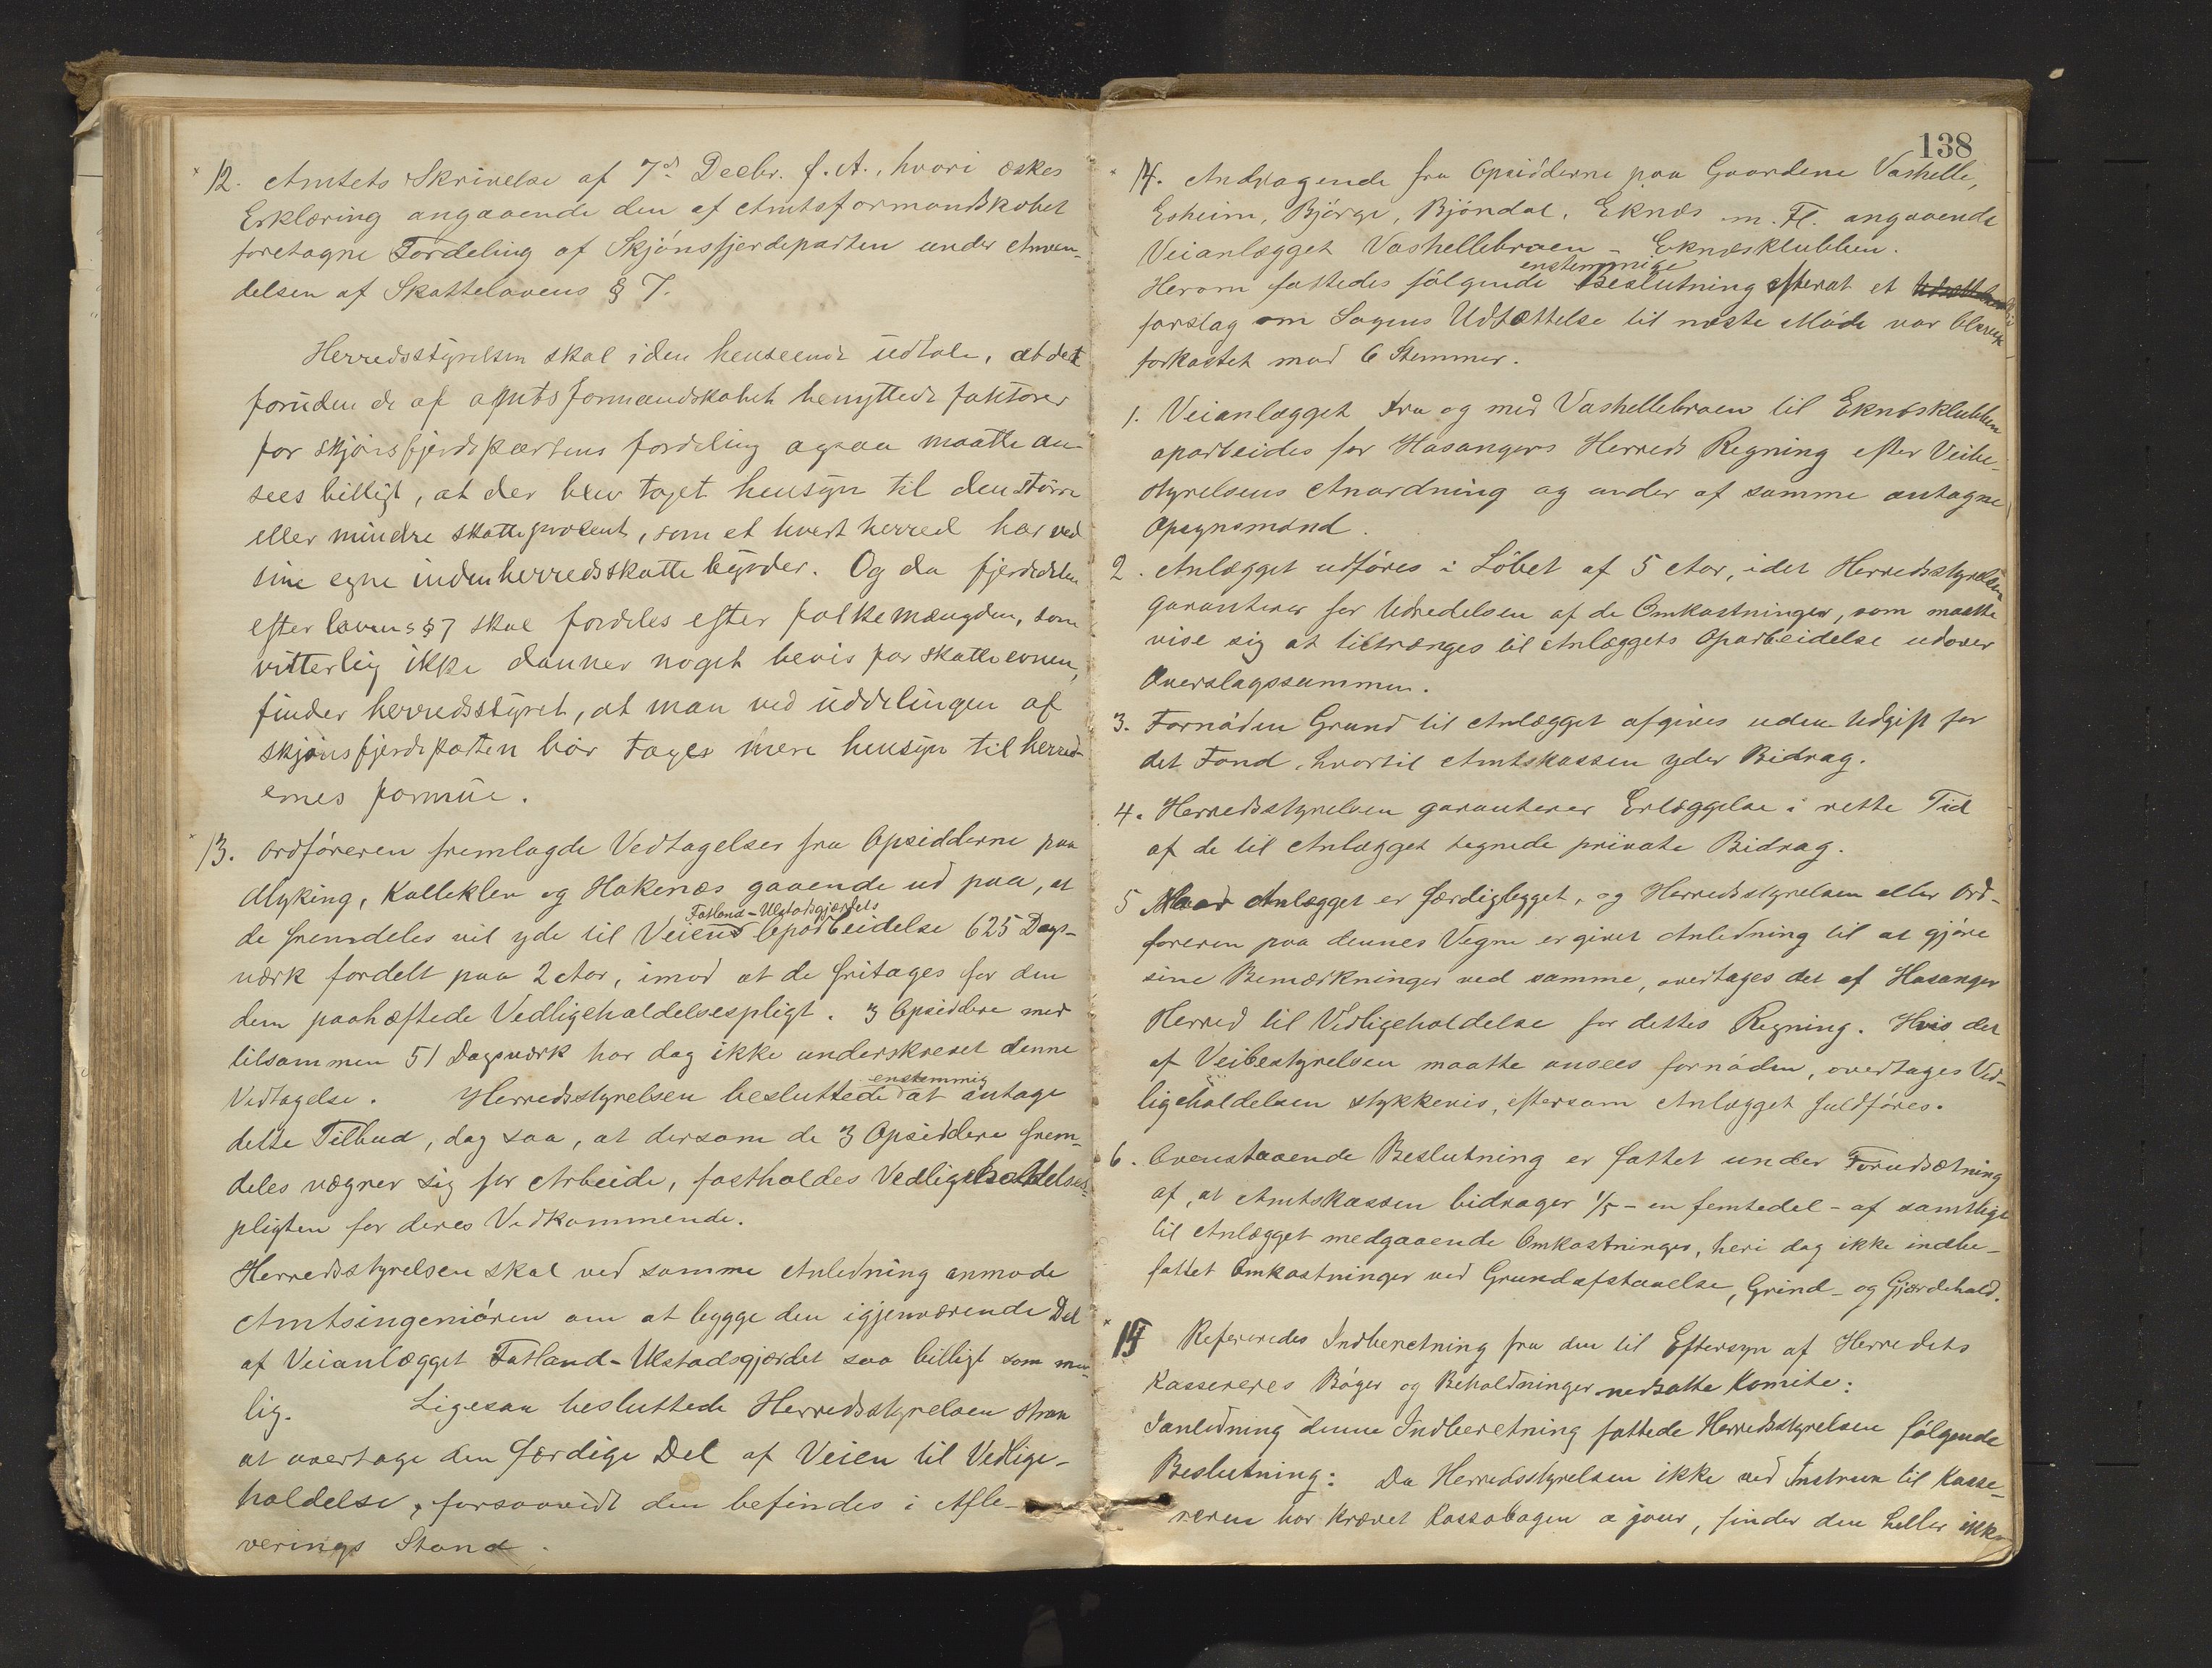 12. Amtets Skrivelse af 7d Decbr. f. A., hvori æskes
Erklæring angaaende den af Amtsformandskabet
foretagne Fordeling af Skjønsfjerdeparten under Anven-
delsen af Skattelovens § 7.
Herredsstyrelsen skal i den henseende udtale, at det
foruden de af amtsformandskabet benyttede faktorer
for skjønsfjerdepartens fordeling ogsaa maatte an-
sees billigt, at der blev taget hensyn til den større
eller mindre skatteprocent, som et hvert herred har ved
sine egne indenherredsskattebyrder. Og da fjerdedelen
efter lovens § 7 skal fordeles efter folkemængden, som
vitterlig ikke danner noget bevis for skatteevnen,
finder herredsstyret, at man ved uddelingen af
skjønsfjerdeparten bør tages mere hensyn til herred-
ernes formue.
13. Ordføreren fremlagde Vedtagelser fra Opsidderne paa
Myking, Kalleklev og Hakenæs gaaende ud paa, at
de fremdeles vil yde til Veiens Fatland-Ulstadsgjærdets Oparbeidelse 625 Dags-
værk fordelt paa 2 Aar, imod at de fritages for den
dem paahæftede Vedligeholdelsespligt. 3 Opsiddere med
tilsammen 51 Dagsværk har dog ikke underskrevet denne
Vedtagelse. Herredsstyrelsen besluttede enstemmig at antage
dette Tilbud, dog saa, at dersom de 3 Opsiddere frem-
deles vægrer sig for Arbeide, fastholdes Vedligeholdelses-
pligten for deres Vedkommende.
Herredsstyrelsen skal ved samme Anledning anmode
Amtsingeniøren om at bygge den igjenværende Del
af Veianlægget Fatland-Ulstadsgjærdet saa billigt som mu-
lig. Ligesaa besluttede Herredsstyrelsen strax
at overtage den færdige Del af Veien til Vedlige-
holdelse, forsaavidt den befindes i Afle-
verings Stand.
138
14. Andragende fra Opsidderne paa Gaardene Vashelle,
Esheim, Bjørge, Bjøndal, Eknæs m. Fl. angaaende
Veianlægget Vashellebroen - Eknæsklubben.
Herom fattedes følgende enstemmige Beslutning efterat et
forslag om Sagens Udsættelse til næste Møde var bleven
forkastet mod 6 Stemmer.
1. Veianlægget fra og med Vashellebroen til Eknæsklubben
oparbeides for Hosangers Herreds Regning efter Veibe-
styrelsens Anordning og under af samme antagne
Opsynsmænd.
2. Anlægget udføres i Løbet af 5 Aar, idet Herredsstyrelsen
garanterer for Udredelsen af de Omkostninger, som maatte
vise sig at tiltrænges til Anlæggets Oparbeidelse udover
Overslagssummen.
3. Fornøden Grund til Anlægget afgives uden Udgift for
det Fond, hvortil Amtskassen yder Bidrag.
4. Herredsstyrelsen garanterer Erlæggelse i rette Tid
af de til Anlægget tegnede private Bidrag.
5 Naar Anlægget er færdigbygget, og Herredsstyrelsen eller Ord-
føreren paa dennes Vegne er givet Anledning til at gjøre
sine Bemærkninger ved samme, overtages det af Hosanger
Herred til Vedligeholdelse for dettes Regning. Hvis det
af Veibestyrelsen maatte ansees fornøden, overtages Ved-
ligeholdelsen stykkevis, eftersom Anlægget fuldføres.
6. Ovenstaaende Beslutning er fattet under Forudsætning
af, at Amtskassen bidrager 1/5 - en femtedel - af samtlige
til Anlægget medgaaende Omkostninger, heri dog ikke indbe-
fattet Omkostninger ved Grundafstaaelse, Grind- og Gjærdehold.
15 Refereredes Indberetning fra den til Eftersyn af Herredets
Kassereres Bøger og Beholdninger nedsatte Komite:
I anledning denne Indberetning fattede Herredsstyrelsen følgende
Beslutning: Da Herredsstyrelsen ikke ved Instrux til Kasse-
reren har krævet Kassabogen a jour, finder den heller ikke